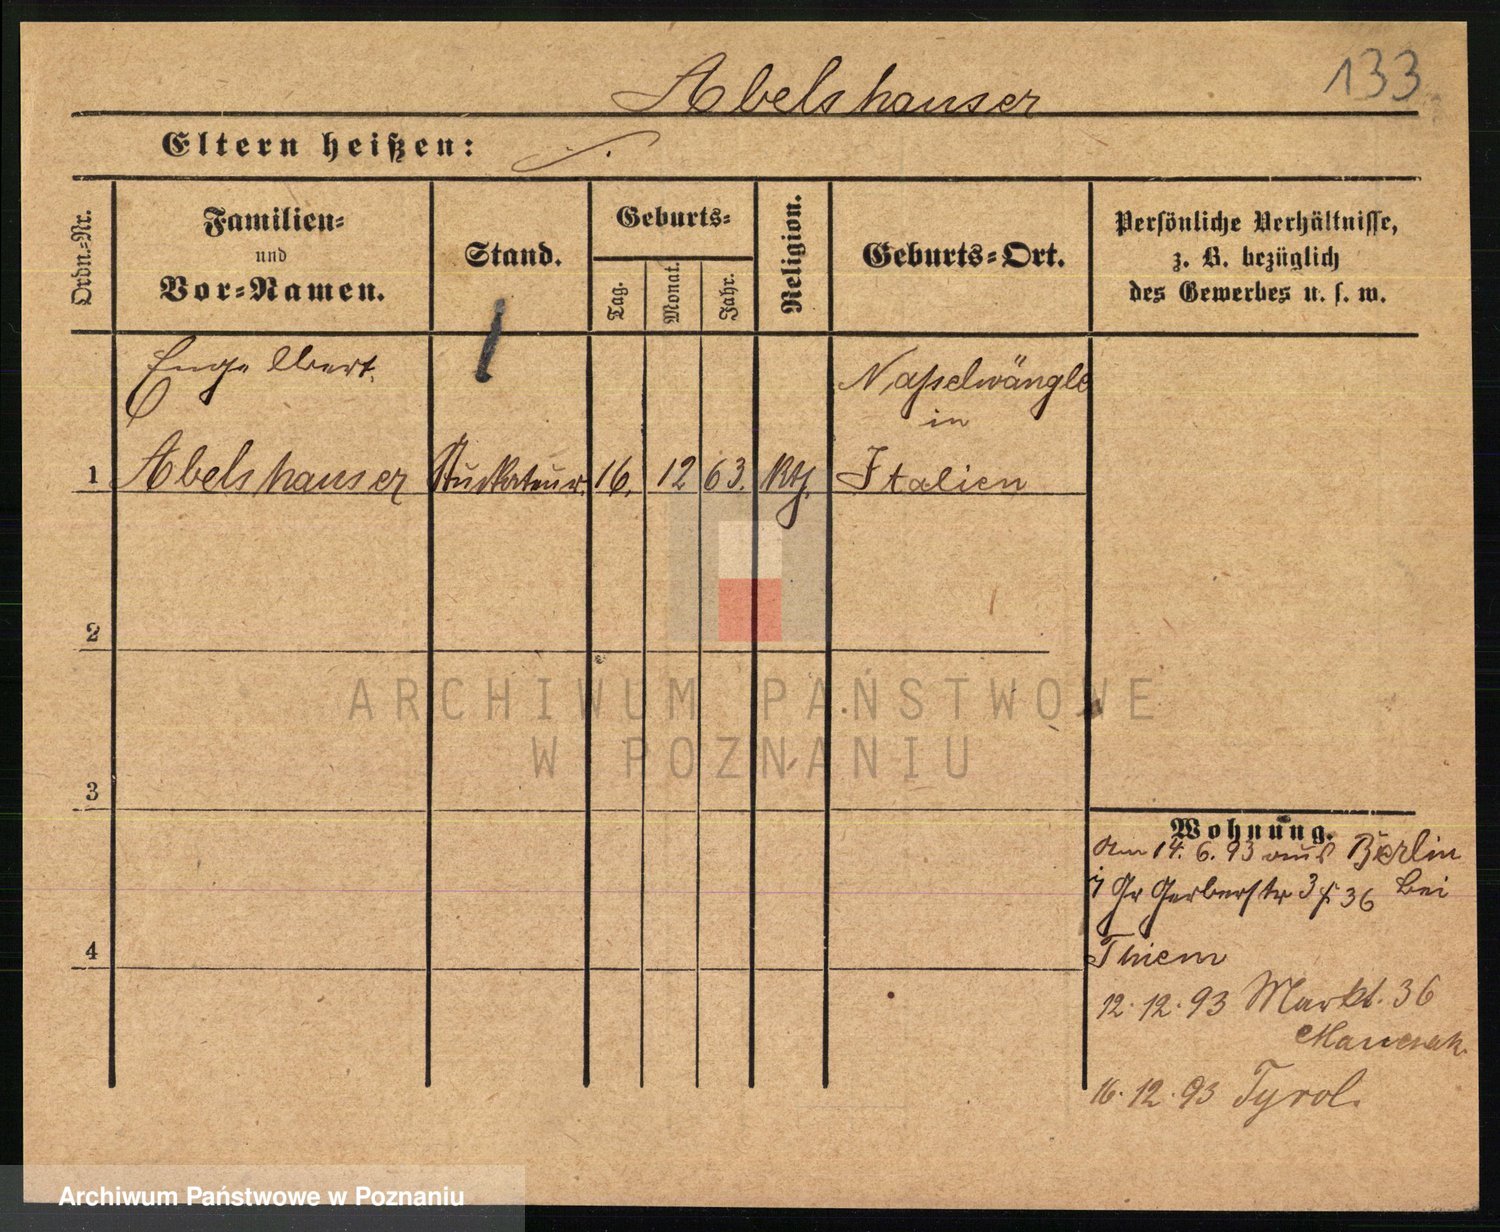 133
Abelshauser
Eltern heißen:
Ordn.-Nr.
Familien- und Vor-Namen.
Stand.
Geburts-
Tag.
Monat.
Jahr.
Religion.
Geburts-Ort.
Persönliche Verhältnisse,
z. B. bezüglich
des Gewerbes u. s. w.
Engelbert
Nasselwängle
in
1 Abelshauser Stuckateur. 16. 12 63. Kth. Italien
2
ARCHIWUM PAŃSTWOWE
W POZNANIU
3
Wohnung.
Am 14. 6. 93 aus Berlin
Gr Gerberstr 36 bei
Thiem
4
12. 12. 93 Markt. 36
16. 12. 93 Tyrol.
Archiwum Państwowe w Poznaniu